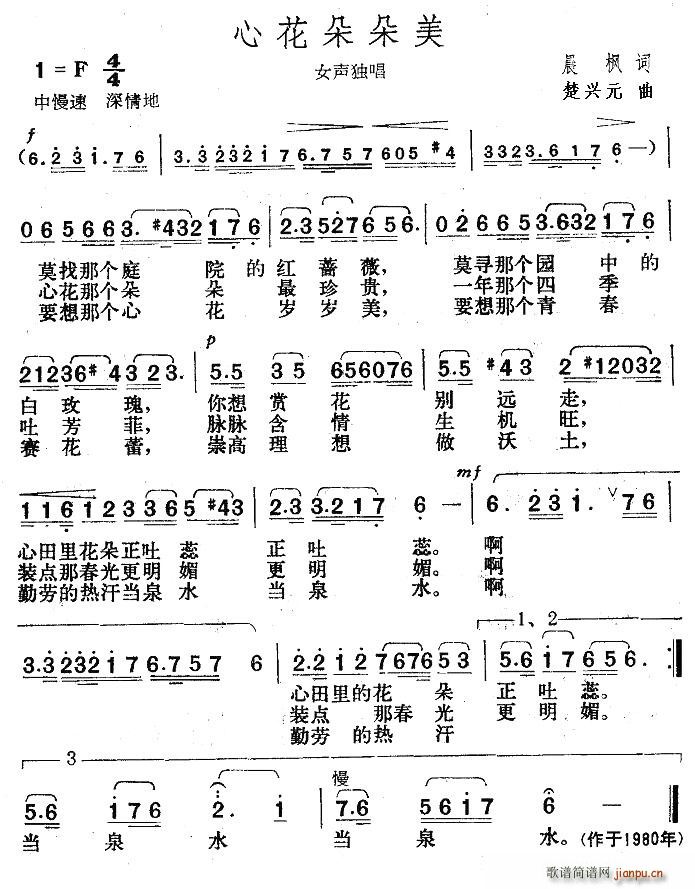 心花朵朵美
1=F 4/4
女声独唱
晨枫词
中慢速 深情地
楚兴元曲
f
(6.2 3 1.7 6 | 3.3 2 3 2 1 7 6.7 5 7 6 0 5 #4 | 3 3 2 3.6 1 7 6 —)
0 6 5 6 6 3. #4 3 2 1 7 6 | 2.3 5 2 7 6 5 6. | 0 2 6 6 5 3.6 3 2 1 7 6
莫找那个庭院的红蔷薇，莫寻那个园中的
心花那个朵朵最珍贵，一年那个四季
要想那个心花岁岁美，要想那个青春
p
2 1 2 3 6 #4 3 2 3. | 5.5 3 5 6 5 6 0 7 6 | 5.5 #4 3 2 #1 2 0 3 2
白玫瑰，你想赏花别远走，
吐芳菲，脉脉含情生机旺，
赛花蕾，崇高理想做沃土，
mf
1 1 6 1 2 3 3 6 5 #4 3 | 2.3 3.2 1 7 6 — | 6. 2 3 1. ∨ 7 6
心田里花朵正吐蕊正吐蕊。啊
装点那春光更明媚更明媚。啊
勤劳的热汗当泉水当泉水。啊
1、2
3.3 2 3 2 1 7 6.7 5 7 6 | 2.2 1 2 7 6 7 6 5 3 | 5.6 1 7 6 5 6. :‖
心田里的花朵正吐蕊。
装点那春光更明媚。
勤劳的热汗
3
慢
5.6 1 7 6 2. 1 | 7.6 5 6 1 7 6 — ‖
当泉水当泉水。(作于1980年)
歌谱简谱网
jianpu.cn